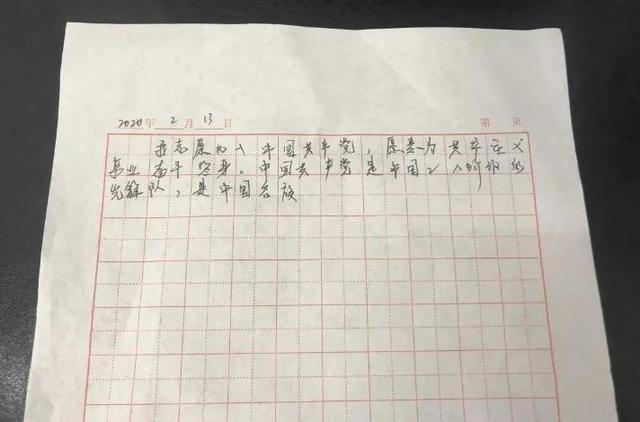 2020年2月13日 第 页
我志愿加入中国共产党，愿意为共产主义
事业奋斗终身。中国共产党是中国工人阶级的
先锋队，是中国各族